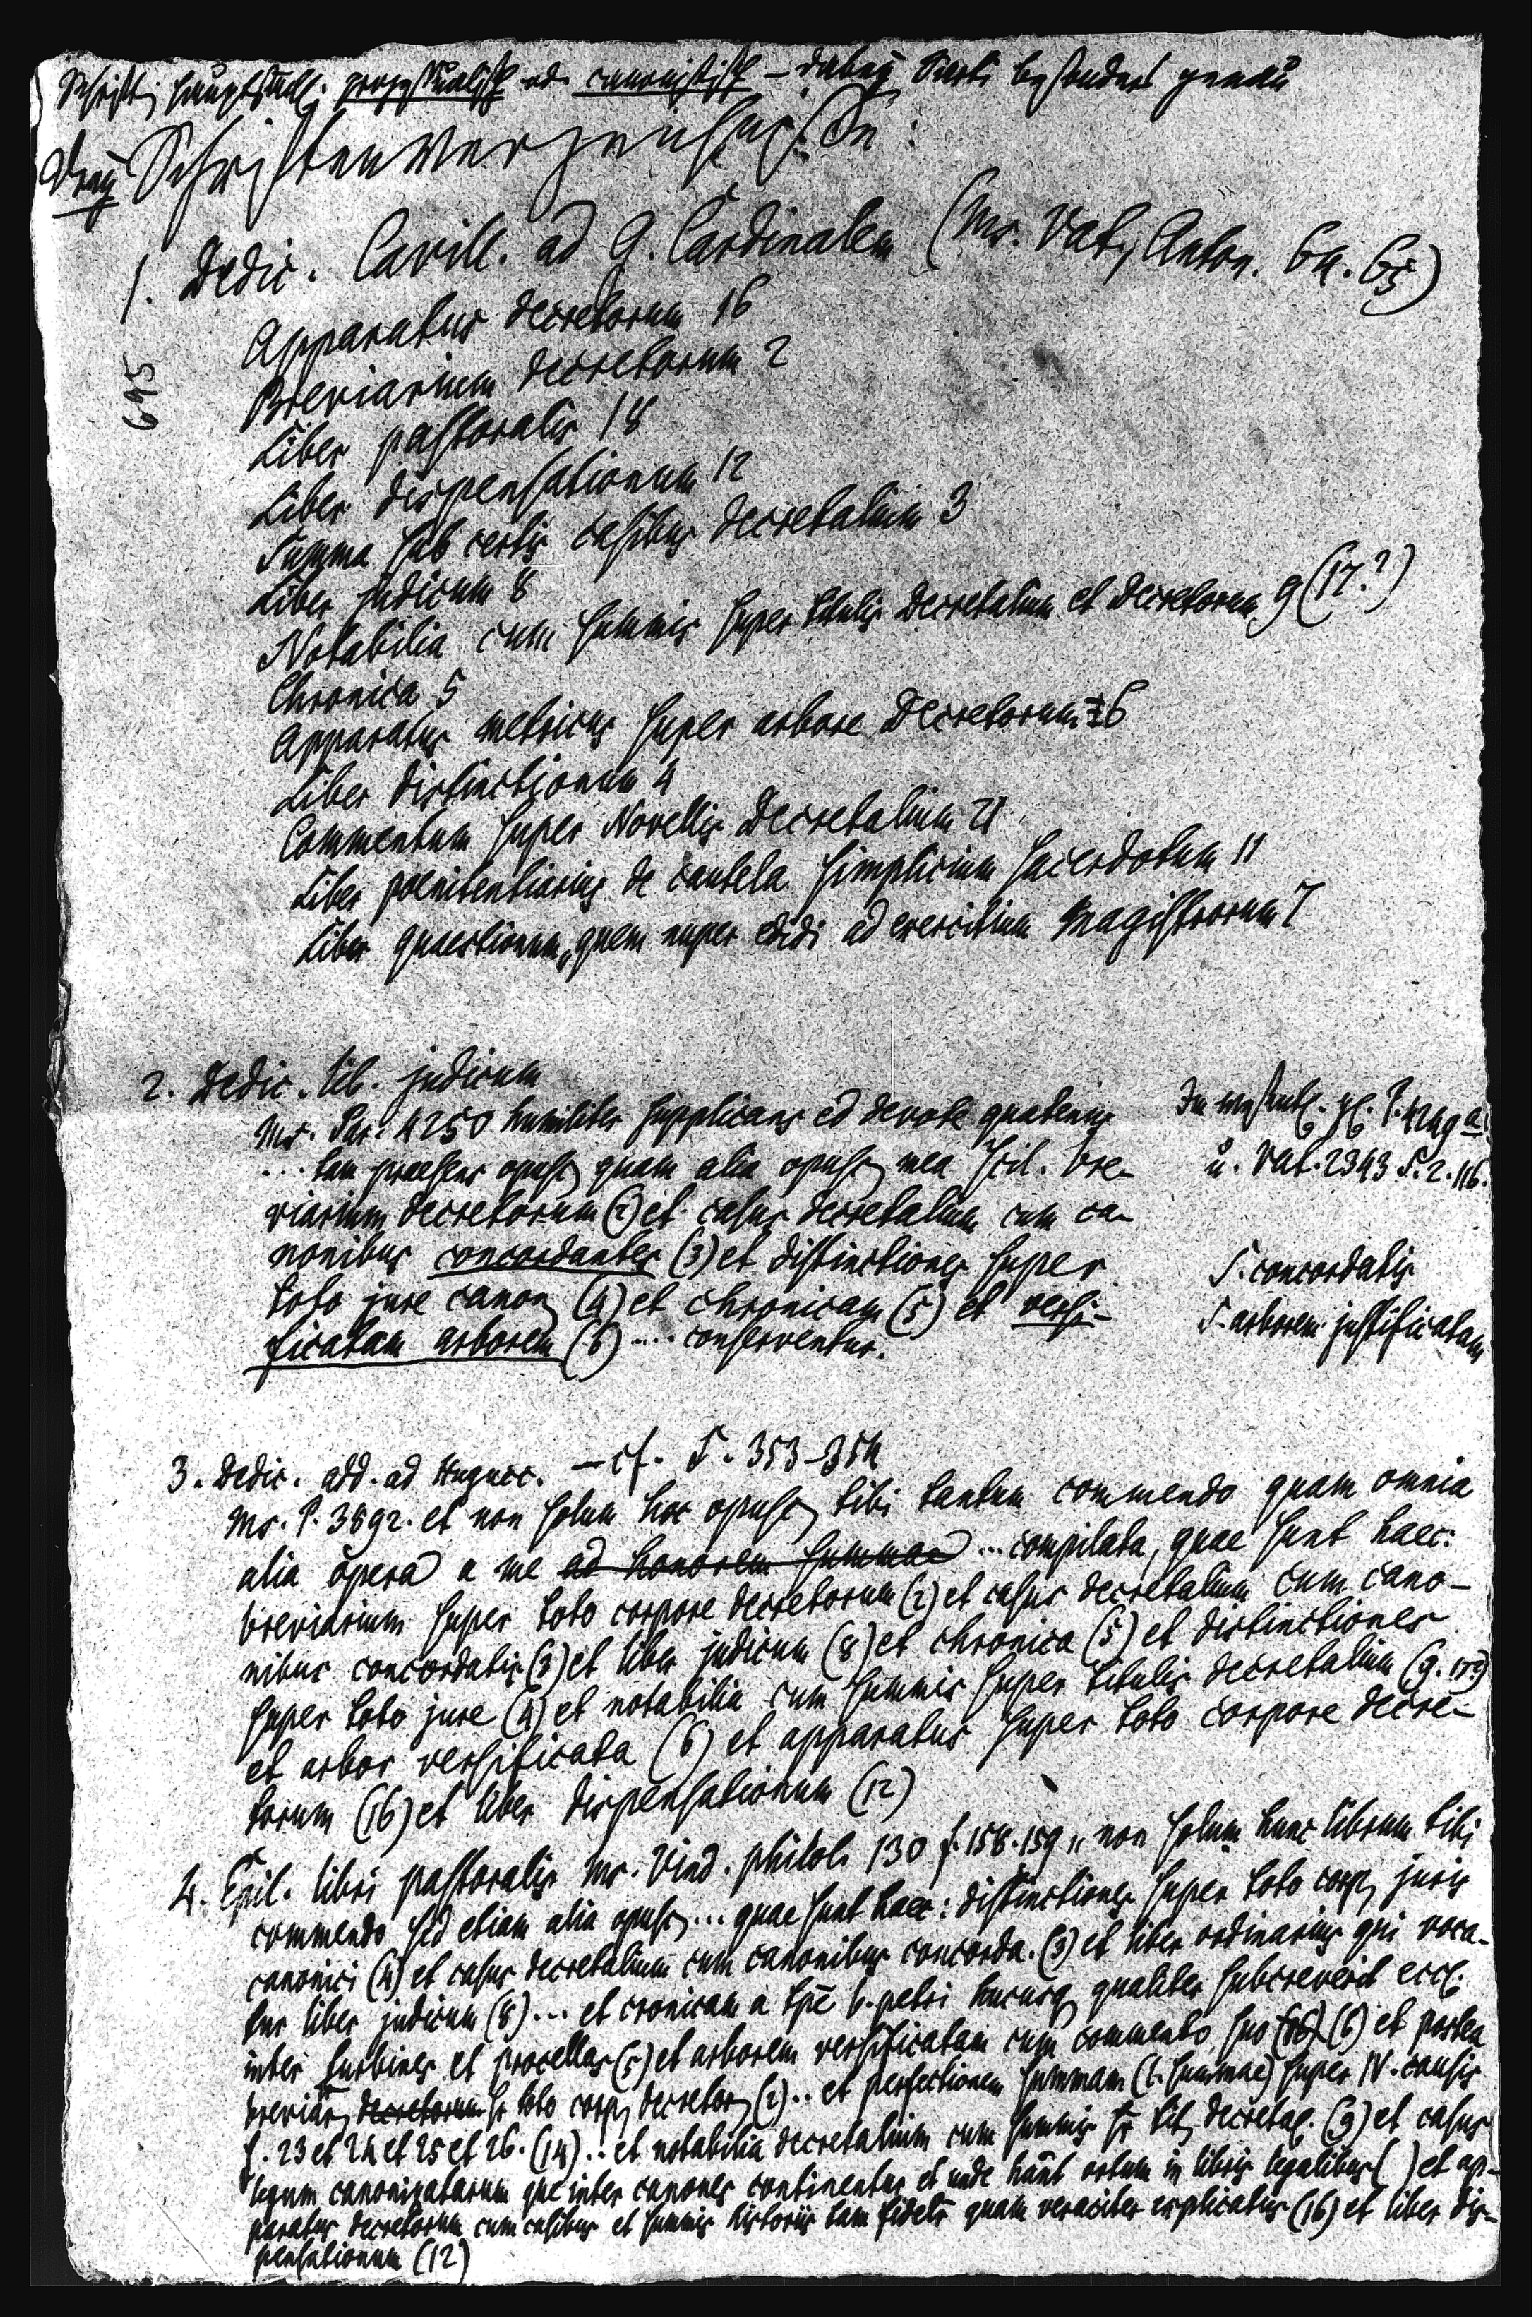 Schriften hauptsächl. processualisch od. canonistisch – dabey Sarti besonders genau
Drey Schriftenverzeichnisse:
1. Dedic. Cavill. ad G. Cardinalem (Ms. Vat. Anton. 64. 65)
695
Apparatus decretorum 16
Breviarium decretorum 2
Liber pastoralis 18
Liber dispensationum 12
Summa sub certis casibus decretalium 3
Liber judicum 8
Notabilia cum summis super titulis decretalium et decretorum 9 (17.?)
Chronica 5
Apparatus metricus super arbore decretorum 6
Liber distinctionum 4
Commentum super Novellis Decretalium 21
Liber poenitentiarius de cautela simplicium sacerdotum 11
Liber quaestionum, quem nuper edidi ad exercitium Magistrorum 7
2. Dedic. lib. judicum
Ms. Par. 4250 humiliter supplicans ed devote quatenus
... tam praesens opusc. quam alia opusc. mea scil. bre-
viarium decretorum (2) et casus decretalium cum ca-
nonibus concordantes (3) et distinctiones super
toto jure canon. (4) et chronicam (5) et versi-
ficatam arborem (6) .... conserventur.
P. 4249 a
u. Vat. 2343 S. 2. 116.
S. concordatis
S. arborem justificatam
3. Dedic. add. ad Hugucc. – cf. S. 353–354
Ms. P. 3892. et non solum hoc opusc. tibi tantum commendo quam omnia
alia opera a me ad honorem summae ... compilata, quae sunt haec:
breviarium super toto corpore decretorum (2) et casus decretalium cum cano-
nibus concordatis (3) et liber judicum (8) et chronica (5) et distinctiones
super toto jure (4) et notabilia cum summis super titulis decretalium (9. 17?)
et arbor versificata (6) et apparatus super toto corpore decre-
torum (16) et liber dispensationum (12)
4. Epil. libri pastoralis Ms. Vind. philol. 130 f. 158. 159 „non solum hunc librum tibi
commendo sed etiam alia opusc. ... quae sunt haec: distinctiones super toto corp. juris
canonici (4) et casus decretalium cum canonibus concorda. (3) et liber ordinarius qui voca-
tur liber judicum (8) ... et cronicam a tpe b. petri hucusq. qualiter subcreverit eccl.
inter turbines et procellas (5) et arborem versificatam cum commento suo (16) (6) et postea
breviar. decretorum sr toto corp. decretor. (2) .. et perfectionem summam (l. summae) super IV. causis
s. 23 et 24 et 25 et 26. (14) .. et notabilia decretalium cum summis sr tit. decretal. (9) et casus
legum canonizatarum que inter canones continentur et unde hant ortum in libris legalibus ( ) et ap-
paratus decretorum cum casibus et summis historiis tam fidelr quam veraciter explicatus (16) et liber dis-
pensationum (12)